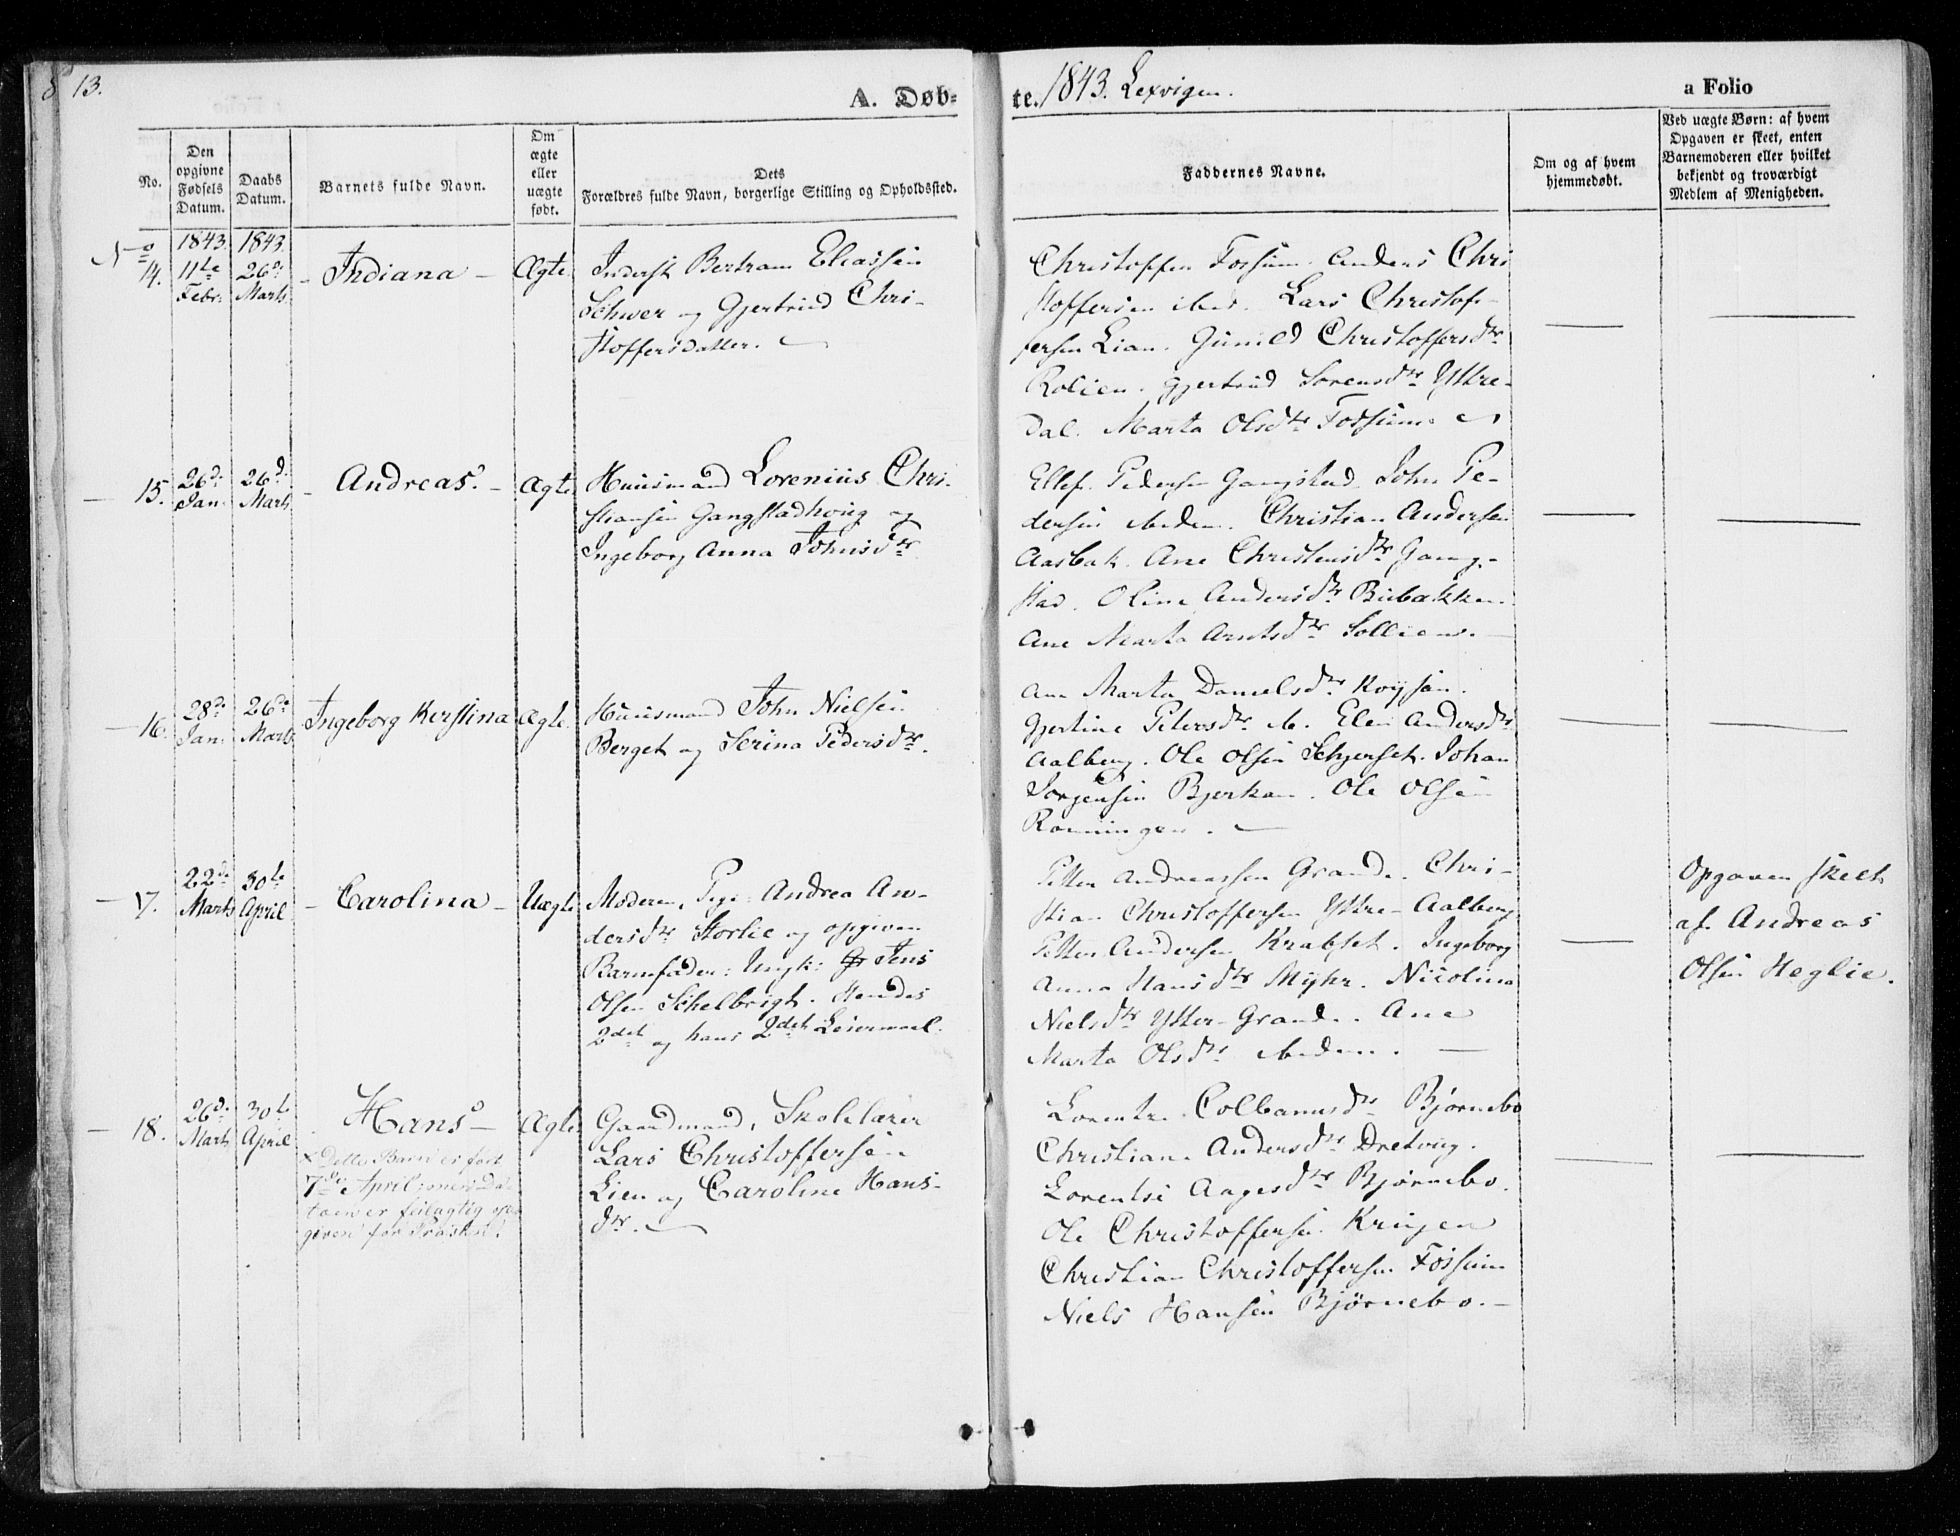 13.
A. Døb-
te. 1843. Lexvigen.
a Folio
No.
Den
opgivne
Fødsels
Datum.
Daabs
Datum.
Barnets fulde Navn.
Om
ægte
eller
uægte
født.
Dets
Forældres fulde Navn, borgerlige Stilling og Opholdssted.
Faddernes Navne.
Om og af hvem
hjemmedøbt.
Ved uægte Børn: af hvem
Opgaven er skeet, enten
Barnemoderen eller hvilket
bekjendt og troværdigt
Medlem af Menigheden.
No 1843. 1843.
14. 11te Febr. 26de Marts
Indiana
Ægte
Inderst Bertram Eliassen
Schver og Gjertrud Chri-
stoffersdatter.
Christoffer Fossum. Anders Chri
stoffersen ibid. Lars Christof-
fersen Lian. Gunild Christoffersdtr
Rolien. Gjertrud Sorensdtr Yttre-
dal. Marta Olsdtr Fossum.
15. 26de Jan. 26de Marts
Andreas.
Ægte
Huusmand Lorenius Chri-
stiansen Gangstadhoug og
Ingeborg Anna Johnsdtr.
Ellef Pedersen Gangstad. John Pe-
dersen ibidem. Christian Andersen
Aasbak. Ane Christensdtr Gang-
stad. Oline Andersdtr Birbakken.
Ane Marta Arntsdtr Sollien.
16. 28de Jan. 26de Marts
Ingeborg Kerstina
Ægte.
Huusmand John Nielsen
Berget og Serina Pedersdtr.
Ane Marta Danielsdtr
Gjertine Petersdtr ib. Elen Andersdtr
Aalberg. Ole Olsen Schjerset. Johan
Jørgensen Bjerkan. Ole Olsen
Rønningen.
17. 22de Marts 30te April
Carolina
Uægte
Moderen, Pige: Andrea An-
dersdtr Storlie og opgiven
Barnefader: Ungk: Jens
Olsen Schelbreigt. Hendes
2det og hans 2det Leiermaal.
Petter Andreassen Grande. Chri-
stian Christoffersen Yttre-Aalberg
Petter Andersen Krabset. Ingeborg
Anna Hansdtr Myhr. Nicolina
Nielsdtr Ytter-Grande. Ane
Marta Olsdtr ibidem.
Opgaven skeet
af Andreas
Olsen Heglie.
18. 26de Marts 30te April
Hans
× Dette Barn er født
7de April: men Da-
toen er feilagtig op-
given for Præsten.
Ægte.
Gaardmand, Skolelærer
Lars Christoffersen
Lien og Caroline Hans-
dtr.
Lorentse Colbanusdtr Bjørnebo
Christiane Andersdtr Dretvig.
Lorentse Aagesdtr Bjørnebo.
Ole Christoffersen Kringen
Christian Christoffersen Fossum
Niels Hansen Bjørnebo.